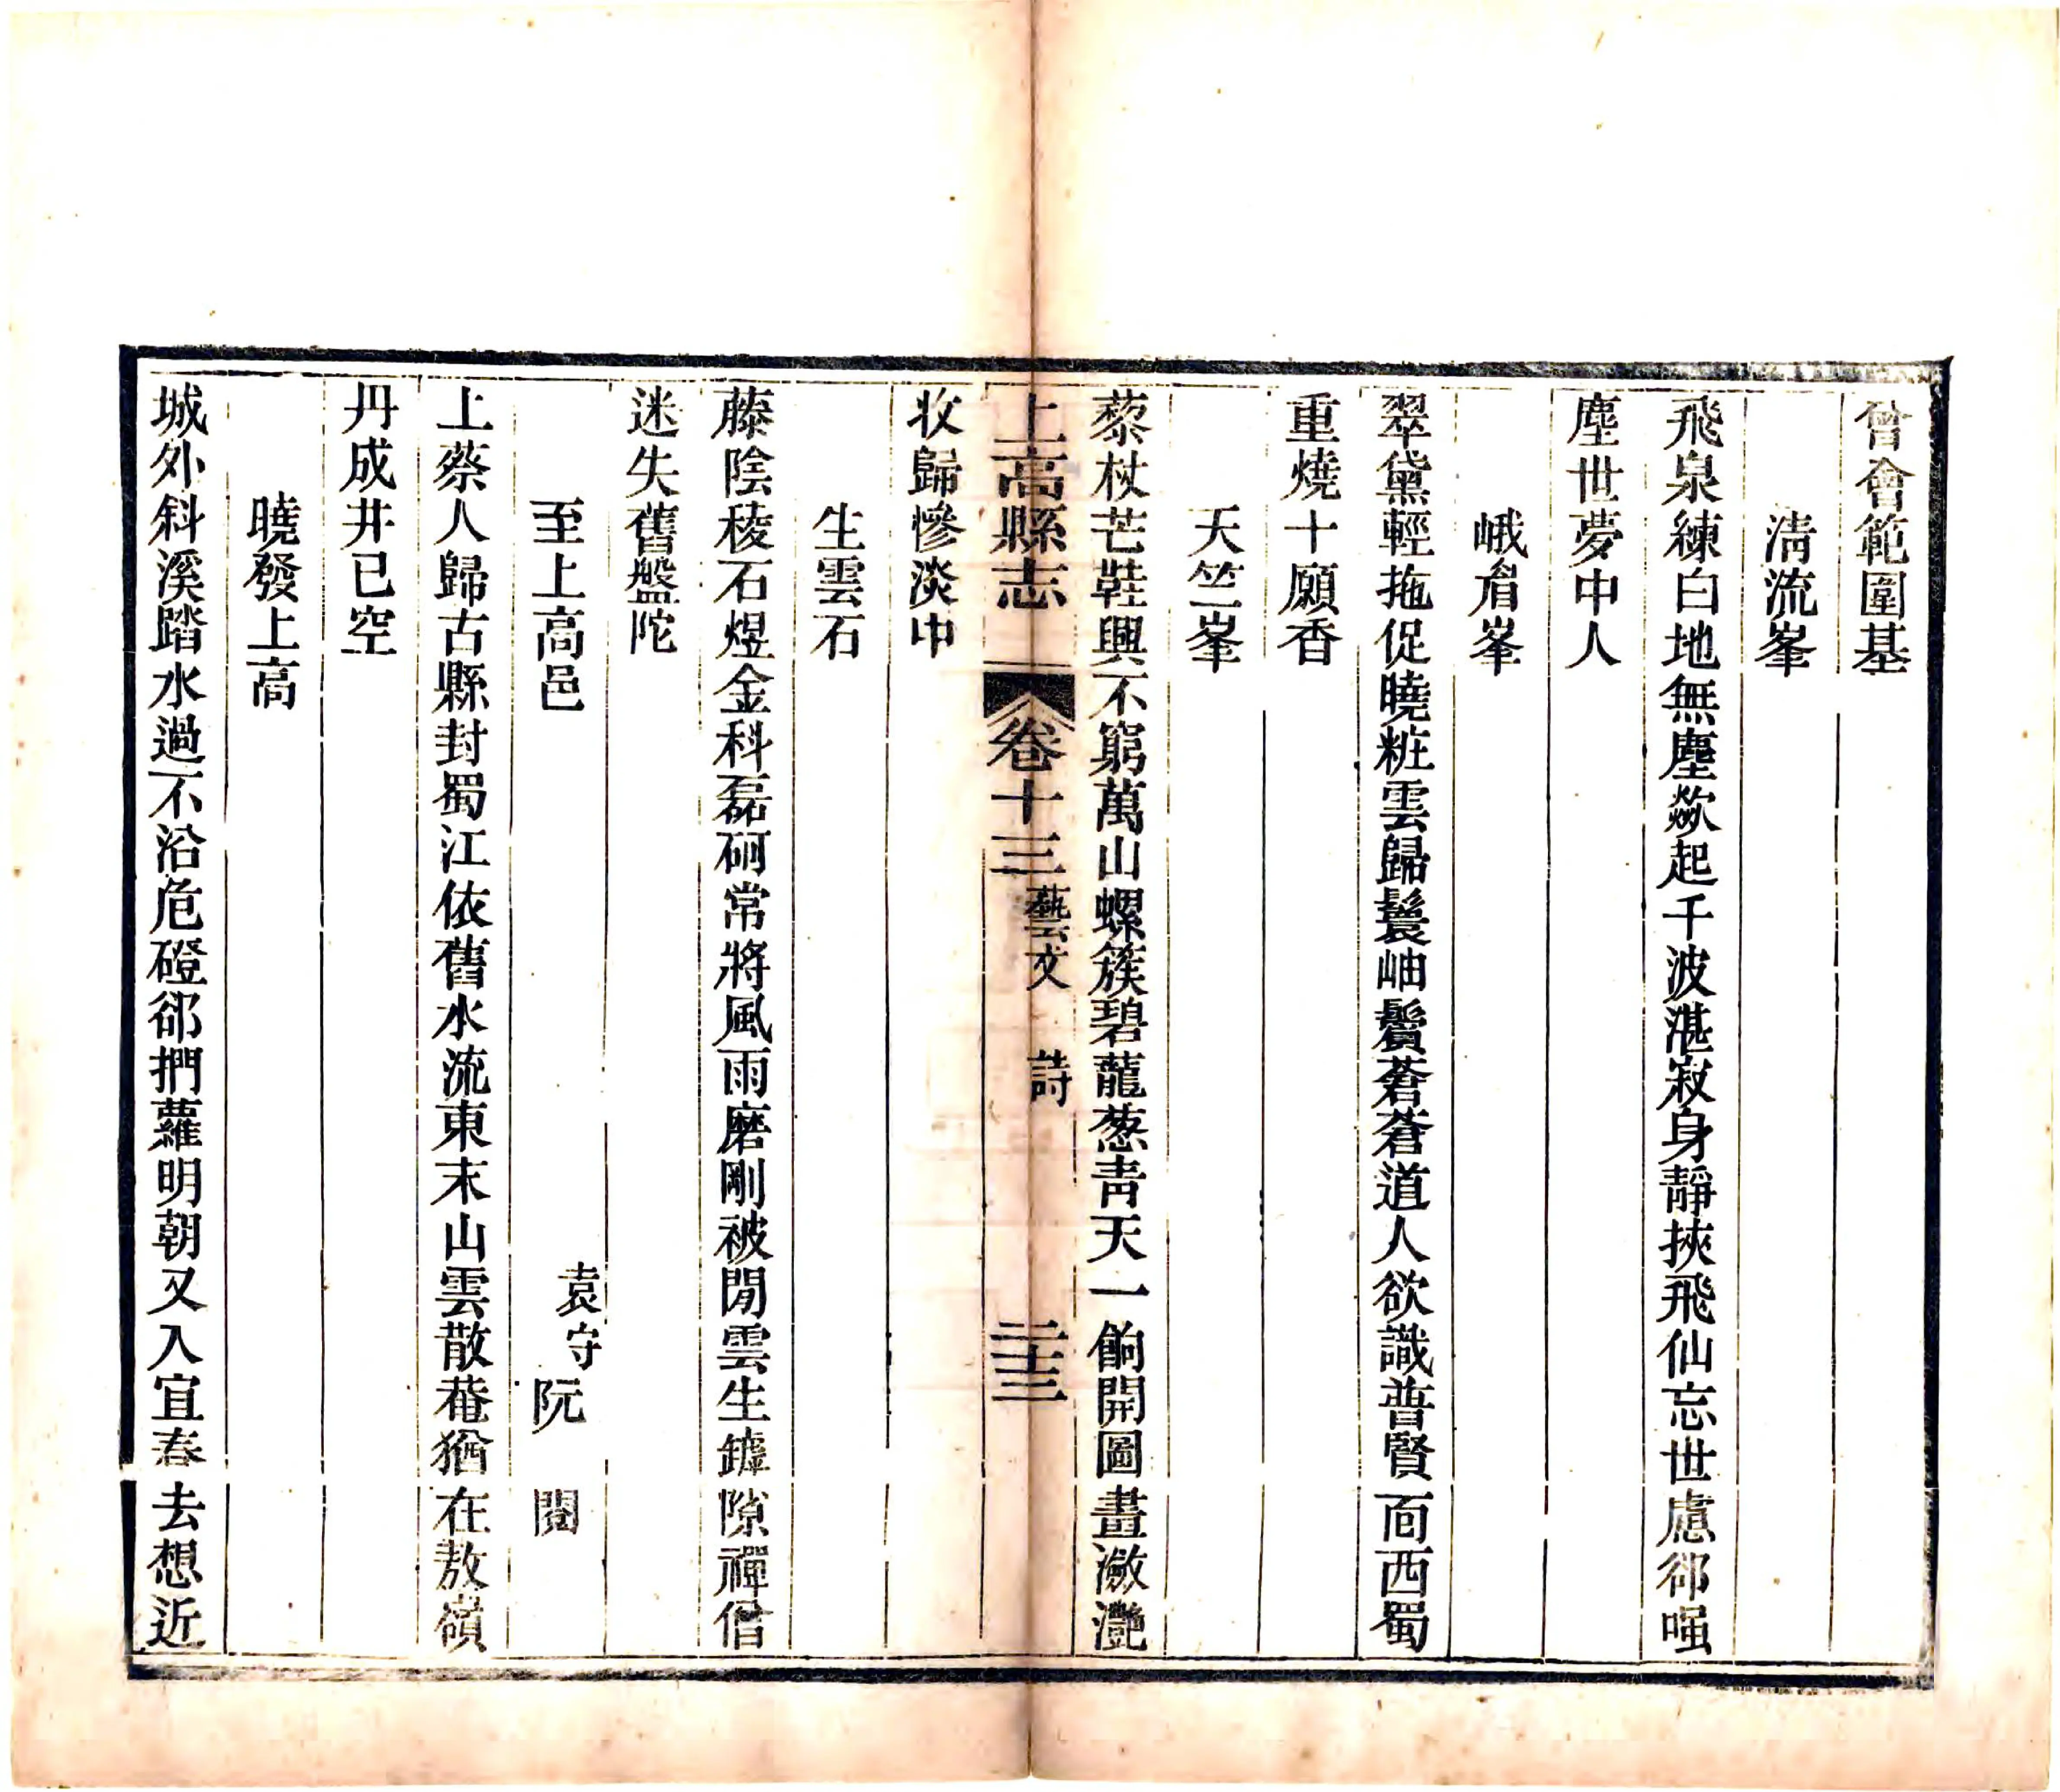 曾會範圍基
清流峯
飛泉練白地無塵歘起千波湛寂身靜挾飛仙忘世慮郤嗤
塵世夢中人
峨眉峯
翠黛輕拖促曉粧雲歸鬟岫鬢蒼蒼道人欲識普賢面西蜀
重燒十願香
天竺峯
藜杖芒鞋興不窮萬山螺簇碧蘢葱靑天一餉開圖畫瀲灧
上高縣志 卷十三 藝文 詩 二十三
收歸慘淡中
生雲石
藤陰稜石煜金科磊砢常將風雨磨剛被閒雲生罅隙禪僧
迷失舊盤陀
至上高邑 袁守 阮閱
上蔡人歸古縣封蜀江依舊水流東末山雲散菴猶在敖嶺
丹成井已空
曉發上高
城外斜溪踏水過不沿危磴郤捫蘿明朝又入宜春去想近